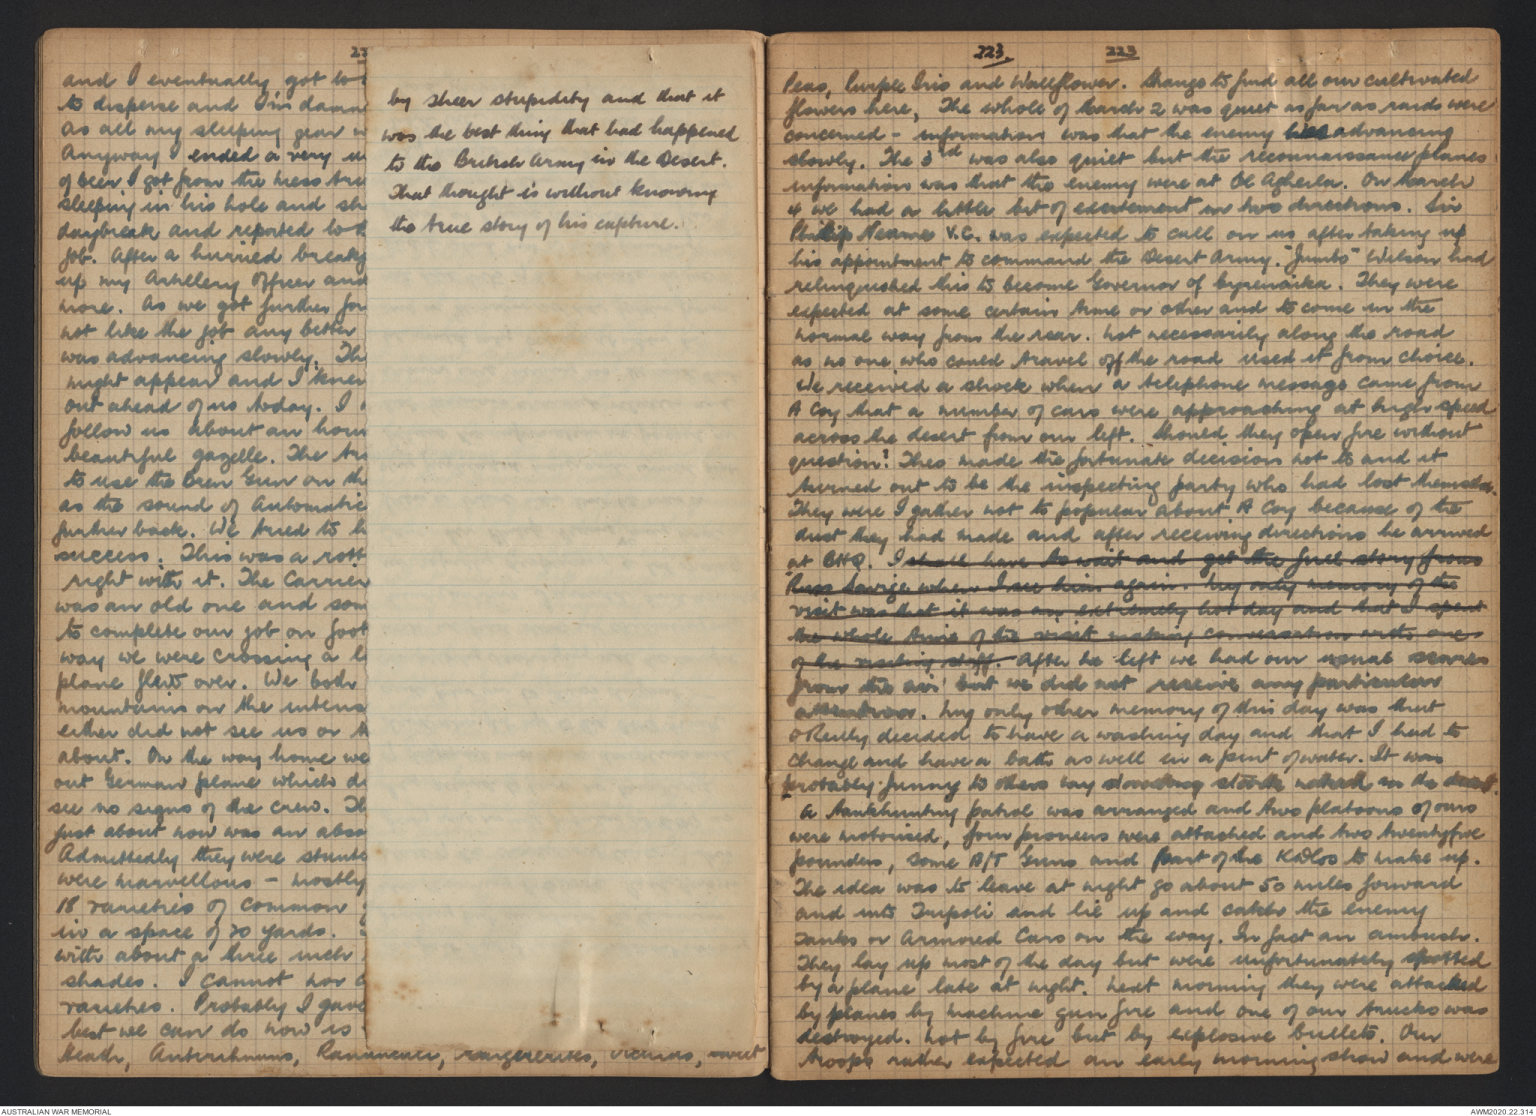 and I eventually got to
to disperse and I'm damn
as all my sleeping gear w
Anyway I ended a very
of beer I got from the mess tru
sleeping in his hole and sh
daybreak and reported to
job. After a hurried break
up my Artillery Officer and
more. As we got further for
not like the job any better
was advancing slowly. Th
might appear and I knew
out ahead of us today. I
follow us about an hour
beautiful gazelle. The tr
to use the Bren Gun on th
as the sound of Automatic
further back. We tried to
success. This was a rott
right with it. The Carrier
was an old one and som
to complete our job on foot
way we were crossing a
plane flew over. We both
mountains on the intens
either did not see us or th
about. On the way home we
out German plane which d
see no signs of the crew. Th
just about now was an abso
Admittedly they were stunte
were marvellous - mostly
18 varieties of common
in a space of 20 yards.
with about a three inch
shades. I cannot nor
varieties. Probably I gave
best we can do now is
Heath, Antirrhinums, Ranunculi, margerites, sweet
23
by sheer stupidity and that it
was the best thing that had happened
to the British Army in the Desert.
That thought is without knowing
the true story of his capture.
223. 223
Peas, Purple Iris and Wallflower. Strange to find all our cultivated
flowers here, The whole of March 2 was quiet as far as raids were
concerned - information was that the enemy was advancing
slowly. The 3rd was also quiet but the reconnaissance planes
information was that the enemy were at El Agheila. On March
4 we had a little bit of excitement in two directions. Sir
Philip Neame V.C. was expected to call on us after taking up
his appointment to command the Desert Army. "Jumbo" Wilson had
relinquished this to become Governor of Cyrenaika. They were
expected at some certain time or other and to come in the
normal way from the rear. Not necessarily along the road
as no one who could travel off the road used it from choice.
We received a shock when a telephone message came from
A Coy that a number of cars were approaching at high speed
across the desert from our left. Should they open fire without
question? Theo made the fortunate decision not to and it
turned out to be the inspecting party who had lost themselves.
They were I gather not to popular about A Coy because of the
dust they had made and after receiving directions he arrived
at BHQ. I shall have to wait and get the full story from
Russ Savige when I see him again. My only memory of the
visit was that it was an extremely hot day and that I spent
the whole time of the visit making conversation with one
of the visiting staff. After he left we had our usual scares
from the air but we did not receive any particular
attention. My only other memory of this day was that
O'Reilly decided to have a washing day and that I had to
change and have a bath as well in a pint of water. It was
probably funny to others my standing stark naked in the desert.
A tankhunting patrol was arranged and two platoons of ours
were motorised, four pioneers were attached and two twentyfive
pounders, some A/T Guns and part of the KDGs to make up.
The idea was to leave at night go about 50 miles forward
and into Tripoli and lie up and catch the enemy
Tanks or Armored Cars on the way. In fact an ambush.
They lay up most of the day but were unfortunately spotted
by a plane late at night. Next morning they were attacked
by planes by machine gun fire and one of our trucks was
destroyed. Not by fire but by explosive bullets. Our
troops rather expected an early morning show and were
AUSTRALIAN WAR MEMORIAL
AWM2020.22.314